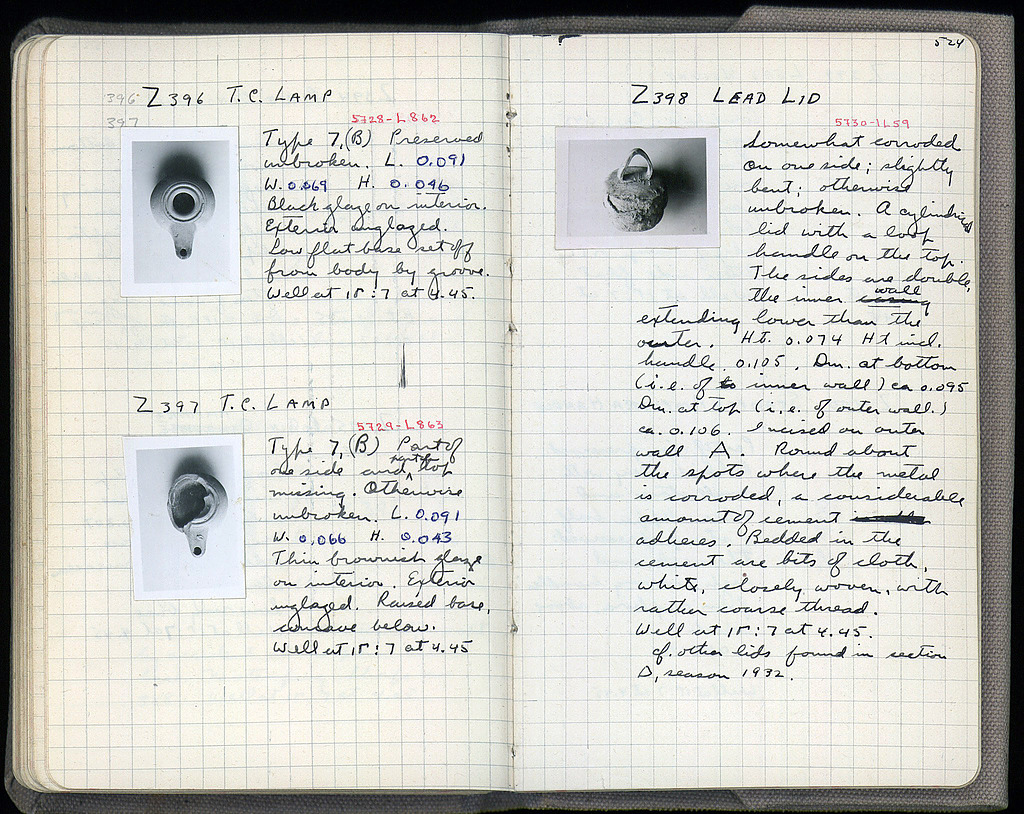 396
397
Z 396 T.C. LAMP
5728-L862
Type 7, (B) Preserved
unbroken. L. 0.091
W. 0.069 H. 0.046
Black glaze on interior.
Exterior unglazed.
Low flat base set off
from body by groove.
Well at 15:7 at 4.45.
Z 397 T.C. LAMP
5729-L863
Type 7, (B) Part of
one side and part of top
missing. Otherwise
unbroken. L. 0.091
W. 0,066 H. 0.043
Thin brownish glaze
on interior. Exterior
unglazed. Raised base,
concave below.
Well at 15:7 at 4.45
524
Z 398 LEAD LID
5730-IL59
Somewhat corroded
on one side; slightly
bent; otherwise
unbroken. A cylindrical
lid with a loop
handle on the top.
The sides are double,
the inner wall
extending lower than the
outer. Ht. 0.074 Ht incl.
handle. 0.105. Dm. at bottom
(i.e. of inner wall) ca 0.095
Dm. at top (i.e. of outer wall.)
ca. 0.106. Incised on outer
wall A. Round about
the spots where the metal
is corroded, a considerable
amount of cement
adheres. Bedded in the
cement are bits of cloth,
white, closely woven, with
rather coarse thread.
Well at 15:7 at 4.45.
cf. other lids found in section
Δ, season 1932.